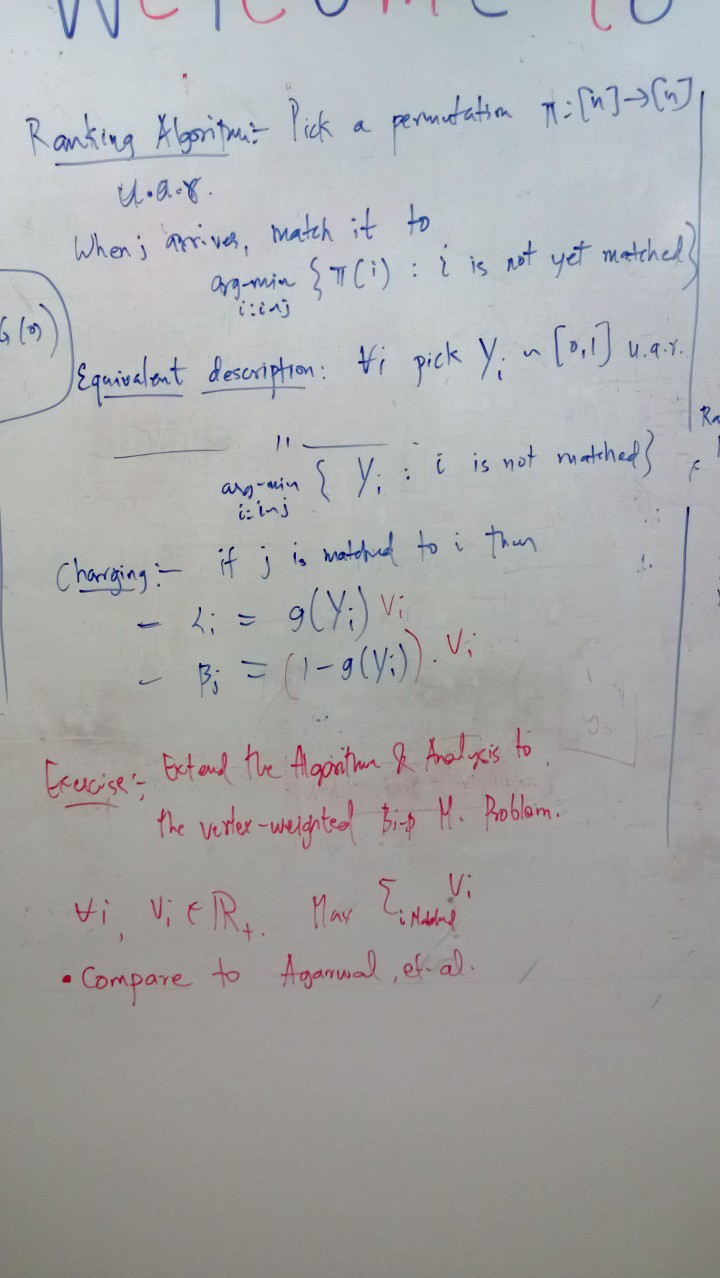 WELCOME TO
Ranking Algorithm:- Pick a permutation π:[n]→[n]
u.a.r.
When j arrives, match it to
arg-min {π(i) : i is not yet matched}
i:i~j
G(0)
Equivalent description: ∀i pick Y_i ~ [0,1] u.a.r.
Ra
——— " ———
arg-min { Y_i : i is not matched}
i:i~j
Charging:- if j is matched to i then
- α_i = g(Y_i) V_i
- β_j = (1-g(Y_i)). V_i
Exercise:- Extend the Algorithm & Analysis to
the vertex-weighted Bi-p M. Problem.
∀i, V_i ∈ ℝ_+. Max Σ_{i Matched} V_i
• Compare to Agarwal, et. al.